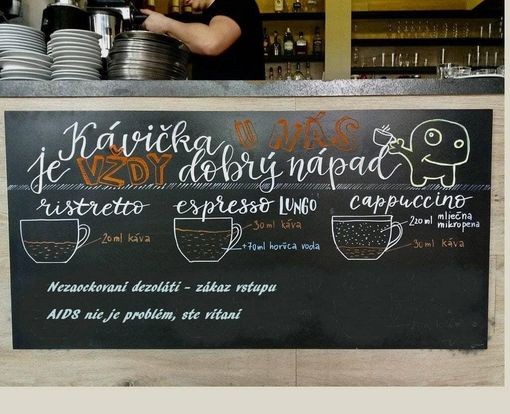 Kávička U NÁS
je VŽDY dobrý nápad
ristretto
20ml káva
espresso LUNGO
30ml káva
+70ml horúca voda
cappuccino
220ml mliečna
mikropena
30ml káva
Nezaockovaní dezoláti - zákaz vstupu
AIDS nie je problém, ste vítaní